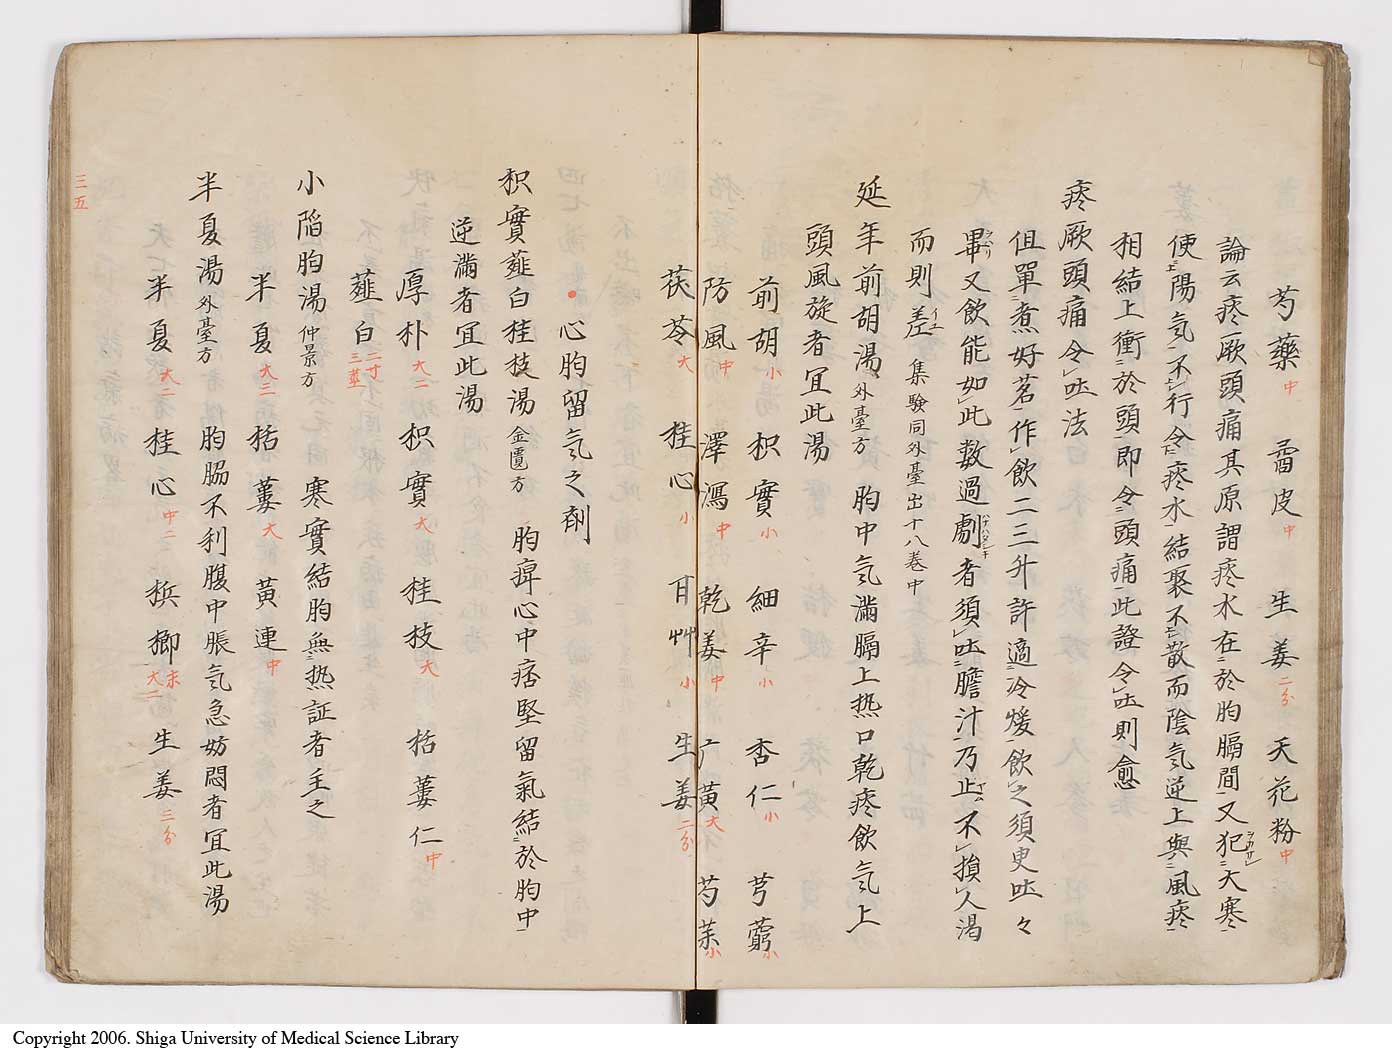 芍藥中 桑皮中 生姜二分 天花粉中
論云痰厥頭痛其原謂痰水在於胸膈間又犯大寒
使陽気不行令痰水結聚不散而陰気逆上與風痰
相結上衝於頭即令頭痛此證令吐則愈
痰厥頭痛令吐法
但單煮好茗作飲二三升許適冷煖飲之須臾吐々
畢又飲能如此数過劇者須吐膽汁乃止不損人渇
而則差 集験同外臺出十八巻中
延年前胡湯外臺方 胸中気滿膈上热口乾痰飲気上
頭風旋者宜此湯
前胡小 枳實小 細辛小 杏仁小 芎藭小
防風中 澤瀉中 乾姜中 广黄大 芍薬小
茯苓大 桂心小 甘艸小 生姜二分
心胸留気之剤
枳實薤白桂枝湯金匱方 胸痺心中痞堅留氣結於胸中
逆滿者宜此湯
厚朴大二 枳實大 桂枝大 栝蔞仁中
薤白二寸三莖
小陥胸湯仲景方 寒實結胸無热証者主之
半夏大三 栝蔞大 黄連中
半夏湯外臺方 胸脇不利腹中脹気急妨悶者宜此湯
半夏大一 桂心中二 梹榔末大二 生姜三分
三五
Copyright 2006. Shiga University of Medical Science Library